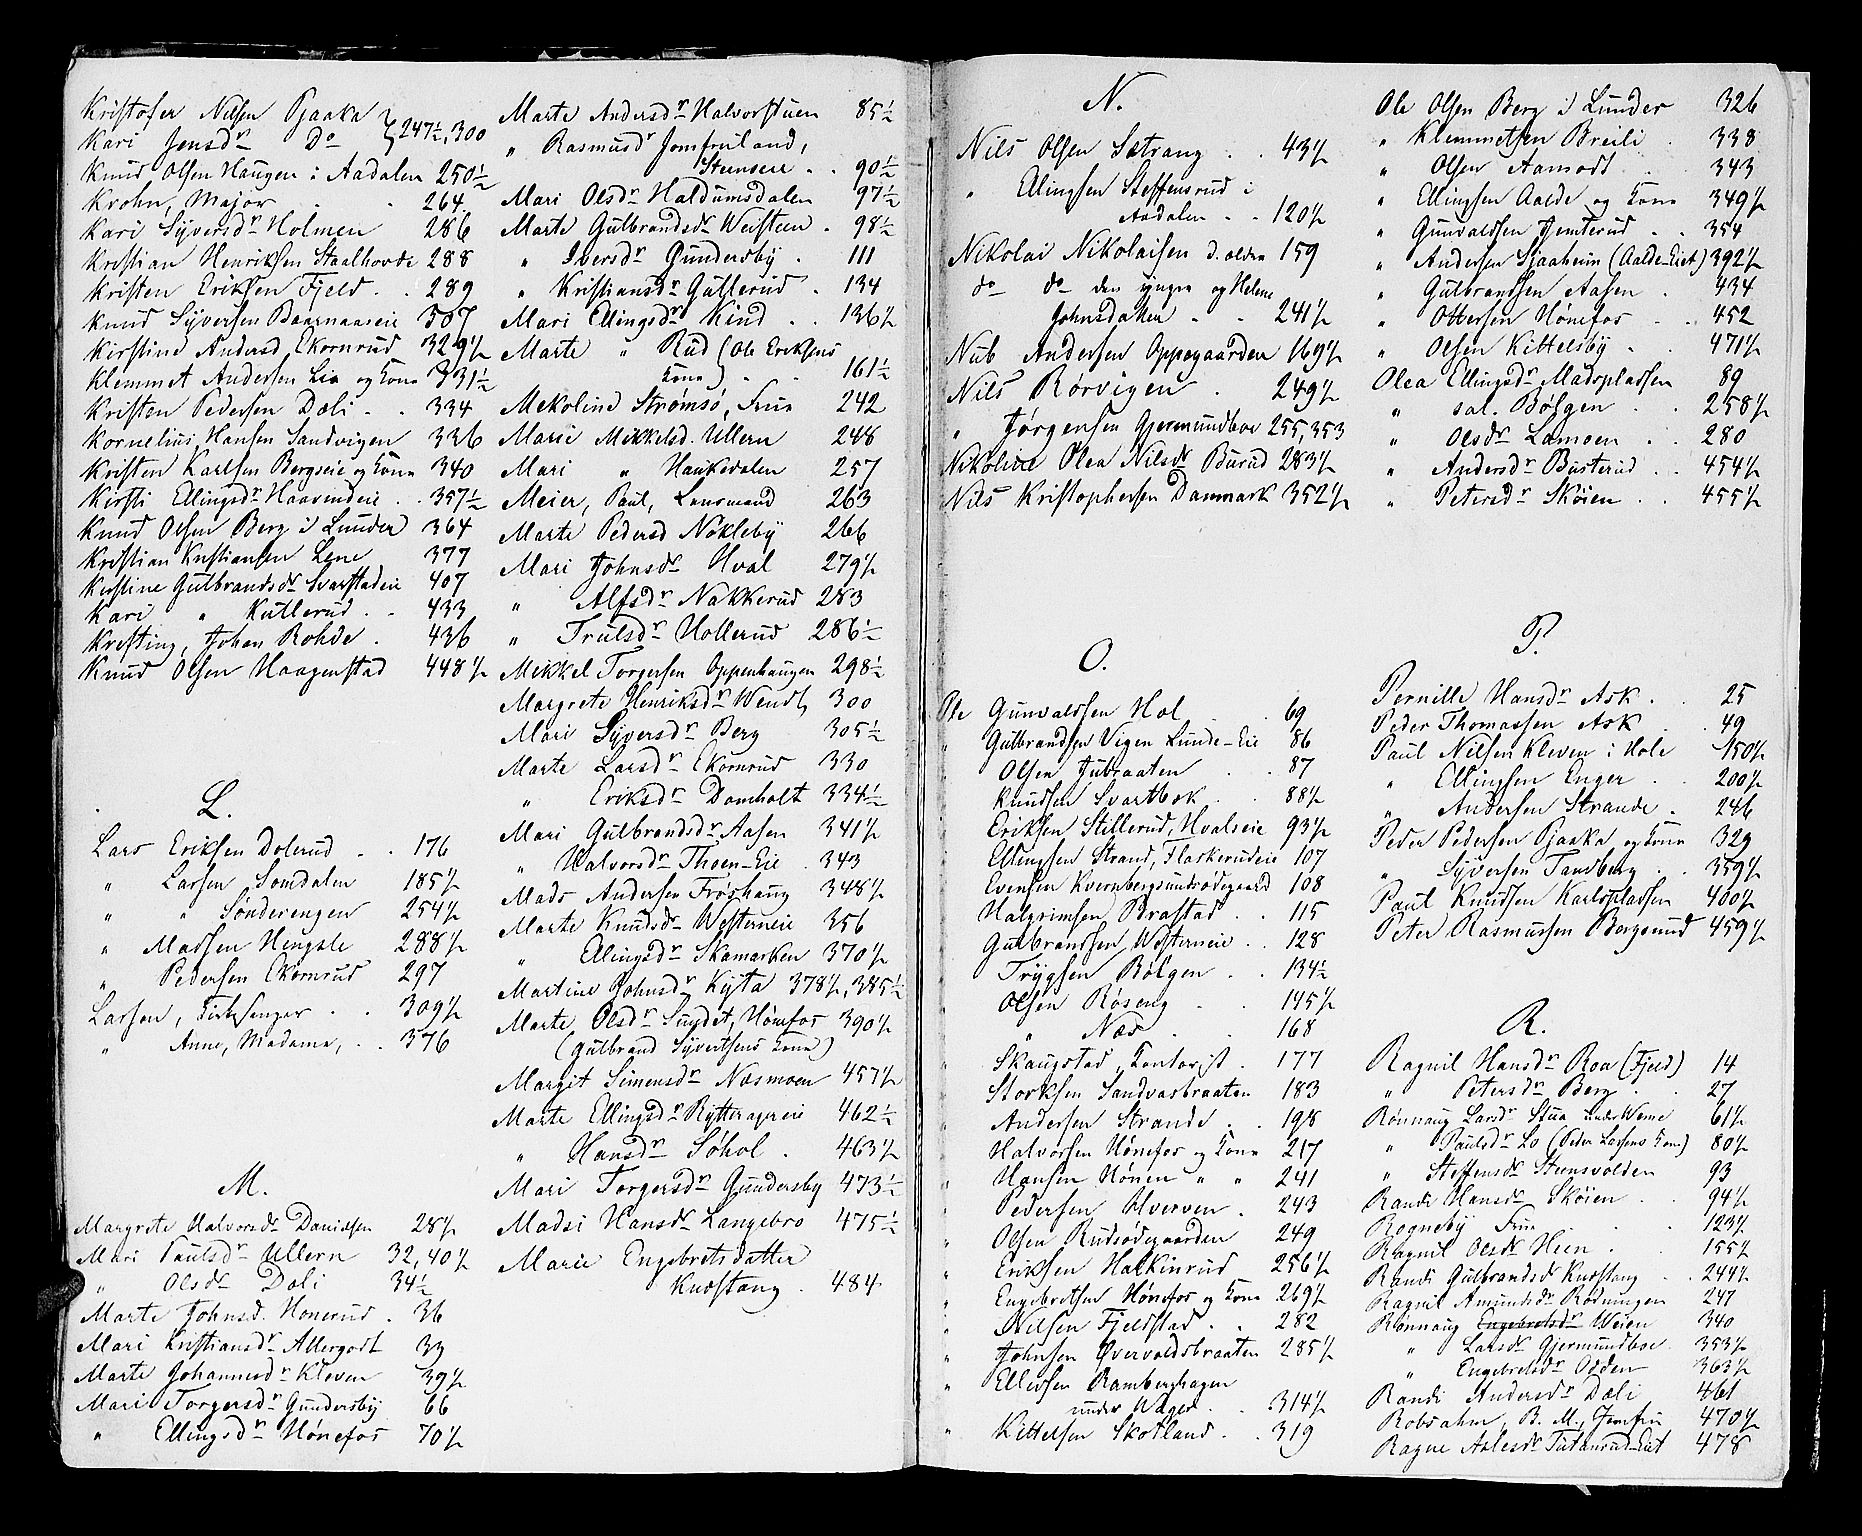 Kristofer Nilsen Pjaaka } 247½, 300
Kari Jensdr Do
Knud Olsen Haugen i Aadalen 250½
Krohn, Major 264
Kari Syversdr Holmen 286
Kristian Henriksen Staalhovde 288
Kristen Eriksen Fjeld 289
Knud Syversen Baarnaaseie 307
Kirstine Andersd. Ekornrud 329½
Klemmet Andersen Lia og Kone 331½
Kristen Pedersen Dæli 334
Kornelius Hansen Sandvigen 336
Kristen Karlsen Bergseie og Kone 340
Kirsti Ellingsdr Haavindeie 357½
Knud Olsen Berg i Lunder 364
Kristian Kristiansen Lene 377
Kirstine Gulbrandsdr Svarstadeie 407
Kari " Kullerud 433
Kresting, Johan Rohde 436
Knud Olsen Haagenstad 448½
L.
Lars Eriksen Dolerud 176
" Larsen Somdalen 185½
" " Sønderengen 254½
" Madsen Hengsle 288½
" Pedersen Ekornrud 297
Larsen, 309½
" Anne, Madame, 376
M.
Margrete Halvorsdr Danielsen 28½
Mari Paulsdr Ullern 32, 40½
" Olsdr Dæli 34½
Marte Johnsd. Honerud 36
Mari Kristiansdr Allergodt 39
Marte Johannesdr Kleven 39½
Mari Torgersdr Gundersby 66
" Ellingsdr Hønefos 70½
Marte Andersdr Halvorstuen 85½
" Rasmusdr Jomfruland,
Steensere 90½
Mari Olsdr Haldumsdalen 97½
Marte Gulbrandsdr Weisteen 98½
" Iversdr Gundersby 111
" Kristiansdr Gullerud 134
Mari Ellingsdr Kind 136½
Marte " Rud (Ole Eriksens
Kone) 161½
Mekoline Strømsø, Frue 242
Marie Mikkelsd. Ullern 248
Mari " Haukedalen 257
Meier, Paul, Lensmand 263
Marte Pedersd Nøkleby 266
Mari Johnsdr Hval 279½
" Alfsdr Nakkerud 283
" Trulsdr Hollerud 286½
Mikkel Torgersen Oppenhaugen 298½
Margrete Henriksdr Wendt, 300
Mari Syversdr Berg 305½
Marte Larsdr Ekornrud 330
" Eriksdr Damholt 334½
Mari Gulbrandsdr Aasen 341½
" Halvorsdr Thoen-Eie 343
Mads Andersen Frøshaug 348½
Marte Knudsdr Westerneie 356
" Ellingsdr Skamarken 370½
Martine Johnsdr Kyta 378½, 385½
Marte Olsdr Sundet, Hønefos 390½
(Gulbrand Syvertsens Kone)
Margit Simensdr Næsmoen 457½
Marte Ellingsdr Rytteragereie 462½
" Hansdr Søhol 463½
Mari Torgersdr Gundersby 473½
Madsi Hansdr Langebro 475½
Marie Engebretsdatter
Knæstang 484
N.
Nils Olsen Sætrang 43½
" Ellingsen Steffensrud i
Aadalen 120½
Nikolai Nikolaisen d. ældre 159
do do den yngre og Helene
Johnsdatter 241½
Nub Andersen Oppegaarden 169½
Nils Rørvigen 249½
" Jørgensen Gjermundboe 255, 353
Nikoline Olea Nilsdr Burud 283½
Nils Kristophersen Danmark 352½
O.
Ole Gunvaldsen Hol 69
" Gulbrandsen Vigen Lunde-Eie 86
Olsen Jubraaten 87
Knudsen Svartbæk 88½
Eriksen Stillerud, Hvalseie 93½
Ellingsen Strand, Flaskerudeie 107
Evensen Kvernbergsundsødegaard 108
Halgrimsen Brastad 115
Gulbrandsen Westerneie 128
Trygsen Bølgen 134½
Olsen Røseng 145½
" Næs 168
" Skaugstad, Kontorist 177
" Storksen Sandvasbraaten 183
" Andersen Strande 198
" Halvorsen Hønefos og Kone 217
" Hansen Hønen " " 241
" Pedersen Hverven 243
" Olsen Rudsødegaarden 249
" Eriksen Halkinrud 256½
" Engebretsen Hønefos og Kone 269½
" Nilsen Fjeldstad 282
" Johnsen Qvervaldsbraaten 285½
" Ellevsen Ramberghagen
under Wager 314½
" Kittelsen Skotland 319
Ole Olsen Berg i Lunder 326
" Klemmetsen Breili 338
" Olsen Aamodt 343
" Ellingsen Aalde og Kone 349½
" Gunvaldsen Jemterud 354
" Andersen Sjaaheim (Aalde-Eiet) 392½
" Gulbrandsen Aasen 434
" Ottersen Hønefos 452
" Olsen Kittelsby 471½
Olea Ellingsdr Madsplassen 89
" sal. Bølgen 258½
" Olsdr Lamoen 280
" Andersdr Busterud 454½
" Petersdr Skøien 455½
P.
Pernille Hansdr Ask 25
Peder Thomassen Ask 49
Paul Nilsen Kleven i Hole 150½
" Ellingsen Enger 200½
" Andersen Strande 246
Peder Pedersen Pjaaka og Kone 329
" Syversen Tandberg 359½
Paul Knudsen Karlsplassen 400½
Peter Rasmussen Borgsund 459½
R.
Ragnil Hansdr Roa (Fjeld) 14
" Petersdr Berg 27
Rønnaug Larsdr Stua under Weme 61½
" Paulsdr Lo (Peder Larsens Kone) 80½
" Steffensdr Steensvolden 93
Randi Hansdr Skøien 94½
Rogneby Frue 123½
Ragnil Olsdr Hien 155½
Randi Gulbrandsdr Knæstang 244½
Ragnil Amundsdr Rødningen 247
Rønnaug Engebretsdr Weien 340
" Larsdr Gjermundboe 353½
" Engebretsdr Odden 363½
Randi Andersdr Dæli 461
Robsahm, B. M., Jomfru 470½
Ragne Aslesdr Tutanrud-Eiet 478